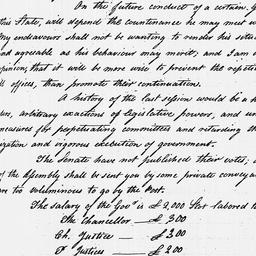 On the future conduct of a certain G
this State, will depend the countenance he may meet w
My endeavours shall not be wanting to render his situa
and agreeable as his behaviour may merit, and I am
opinion, that it will be more wise to prevent the repeti
ll offices, than promote their continuation.
A history of the last session would be a h
ous, arbitrary exactions of legislative powers, and un
measures for perpetuating committees and retarding th
ization and rigorous execution of government.
The Senate have not published their votes;
of the Assembly shall be sent you by some private conveya
are too voluminous to go by the Post.
The salary of the Govr is £2,000 Sbt labored t
The Chancellor — £300
Ch. Justice — £300
P Justices — £200